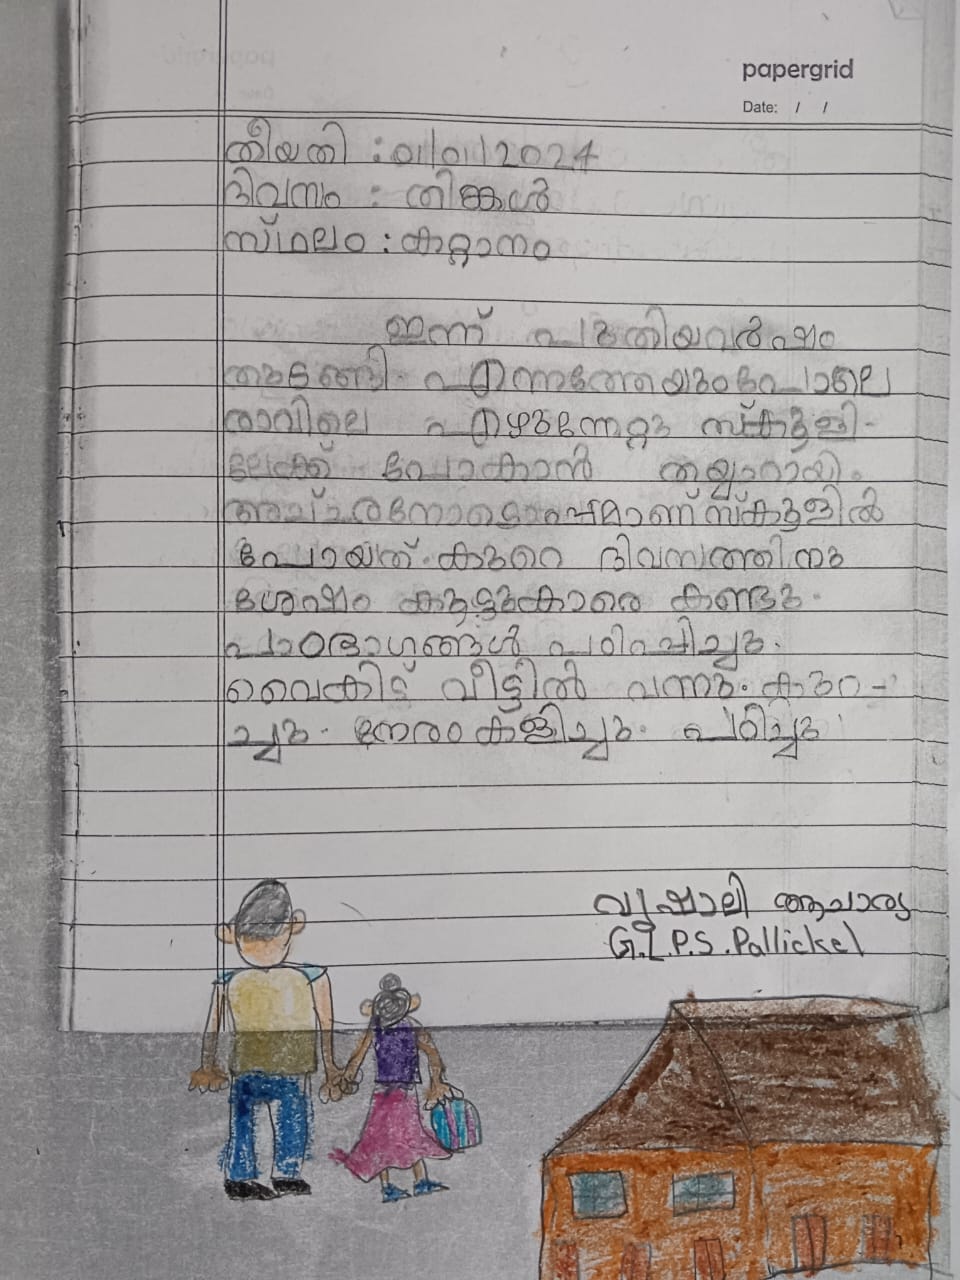 papergrid
Date: / /
തീയതി : 01/01/2024
ദിവസം : തിങ്കൾ
സ്ഥലം : കറ്റാനം
ഇന്ന് പുതിയവർഷം
തുടങ്ങി. എന്നത്തേയുംപോലെ
രാവിലെ എഴുന്നേറ്റു സ്കൂളി-
ലേക്ക് പോകാൻ തയ്യാറായി.
അച്ഛനോടൊപ്പമാണ് സ്കൂളിൽ
പോയത്. കുറെ ദിവസത്തിനു
ശേഷം കൂട്ടുകാരെ കണ്ടു.
പാഠഭാഗങ്ങൾ പഠിപ്പിച്ചു.
വൈകിട്ട് വീട്ടിൽ വന്നു. കുറ-
ച്ചു. നേരം കളിച്ചു. പഠിച്ചു
വൃഷാലി
G.L.P.S. Pallickel